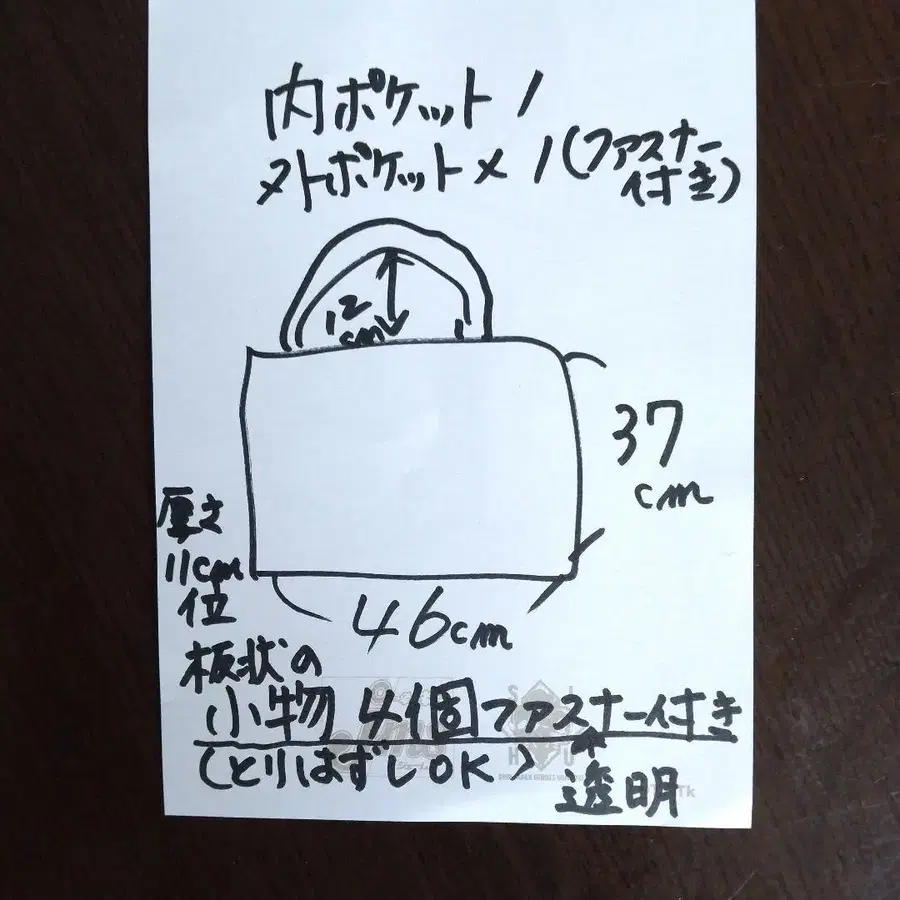 内ポケット1
外ポケット×1(ファスナー
付き)
12
cm
37
cm
厚さ
11cm
位
46cm
板状の
小物4個ファスナー付き
(とりはずしOK)
透明